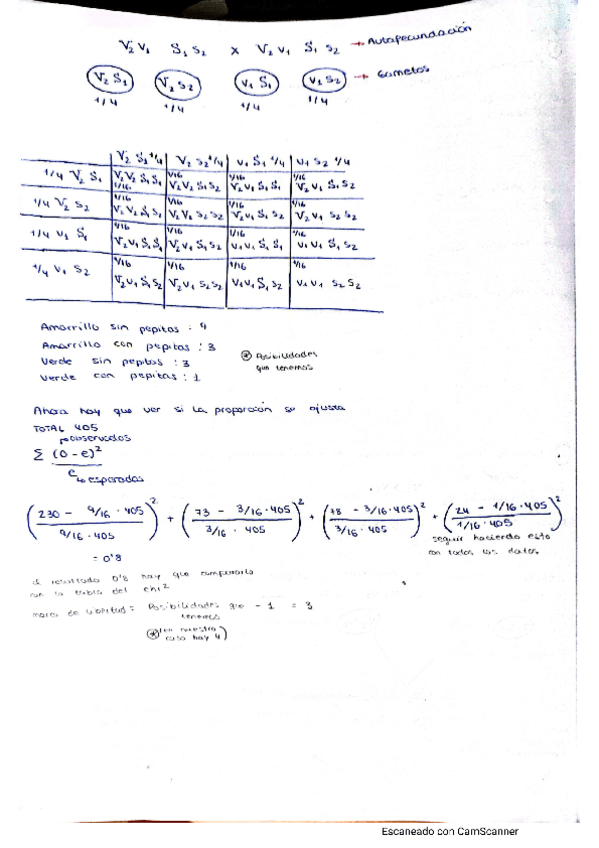 V2 v1 S1 s2 x V2 v1 S1 s2 → Autofecundación
V2 S1 V2 s2 v1 S1 v1 s2 → Gametos
1/4 1/4 1/4 1/4
V2 S1 1/4 V2 s2 1/4 v1 S1 1/4 v1 s2 1/4
1/4 V2 S1
1/16 V2 V2 S1 S1
1/16 V2 V2 S1 s2
1/16 V2 v1 S1 S1
1/16 V2 v1 S1 s2
1/4 V2 s2
1/16 V2 V2 S1 s2
1/16 V2 V2 s2 s2
1/16 V2 v1 S1 s2
1/16 V2 v1 s2 s2
1/4 v1 S1
1/16 V2 v1 S1 S1
1/16 V2 v1 S1 s2
1/16 v1 v1 S1 S1
1/16 v1 v1 S1 s2
1/4 v1 s2
1/16 V2 v1 S1 s2
1/16 V2 v1 s2 s2
1/16 v1 v1 S1 s2
1/16 v1 v1 s2 s2
Amarrillo sin pepitas : 9
Amarrillo con pepitas : 3
Verde sin pepitas : 3
Verde con pepitas : 1
* Posibilidades
que tenemos
Ahora hay que ver si la proporción se ajusta
TOTAL 405
observados
Σ (o - e)²
e
esperados
(230 - 9/16 · 405 / 9/16 · 405)² + (73 - 3/16 · 405 / 3/16 · 405)² + (78 - 3/16 · 405 / 3/16 · 405)² + (24 - 1/16 · 405 / 1/16 · 405)²
seguir haciendo esto
con todos los datos
= 0'8
El resultado 0'8 hay que compararlo
con la tabla del chi²
de libertad = Posibilidades que - 1 = 3
tenemos
* (en nuestro
caso hay 4)
Escaneado con CamScanner